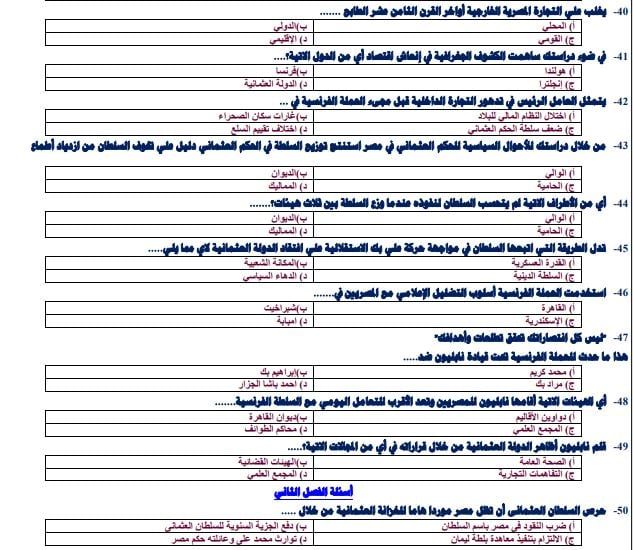 40- يغلب علي التجارة المصرية الخارجية أواخر القرن الثامن عشر الطابع .......
أ) المحلي ب)الدولي
ج) القومي د) الإقليمي
41- في ضوء دراستك ساهمت الكشوف الجغرافية في إنعاش اقتصاد أي من الدول الاتية؟....
أ) هولندا ب)فرنسا
ج) إنجلترا د) الدولة العثمانية
42- يتمثل العامل الرئيس في تدهور التجارة الداخلية قبل مجىء الحملة الفرنسية في ...
أ) اختلال النظام المالي للبلاد ب)غارات سكان الصحراء
ج) ضعف سلطة الحكم العثماني د) اختلاف تقييم السلع
43- من خلال دراستك للأحوال السياسية للحكم العثماني في مصر استنتج توزيع السلطة في الحكم العثماني دليل علي تخوف السلطان من ازدياد أطماع
أ) الوالي ب)الديوان
ج) الحامية د) المماليك
44- أي من الأطراف الاتية لم يتحسب السلطان لنفوذه عندما وزع السلطة بين ثلاث هيئات؟.......
أ) الوالي ب)الديوان
ج) الحامية د) المماليك
45- تدل الطريقة التي اتبعها السلطان في مواجهة حركة علي بك الاستقلالية علي افتقاد الدولة العثمانية لأي مما يلي.....
أ) القدرة العسكرية ب)المكانة الشعبية
ج) السلطة الدينية د) الدهاء السياسي
46- استخدمت الحملة الفرنسية أسلوب التضليل الإعلامي مع المصريين في.......
أ) القاهرة ب)شبراخيت
ج) الاسكندرية د) امبابة
47- "ليس كل انتصاراتك تحقق تطلعات وأهدافك"
هذا ما حدث للحملة الفرنسية تحت قيادة نابليون ضد.....
أ) محمد كريم ب)ابراهيم بك
ج) مراد بك د) احمد باشا الجزار
48- أي الهيئات الاتية أقامها نابليون للمصريين وتعد الأقرب للتعامل اليومي مع السلطة الفرنسية.......
أ) دواوين الأقاليم ب)ديوان القاهرة
ج) المجمع العلمي د) محاكم الطوائف
49- قلم نابليون أظافر الدولة العثمانية من خلال قراراته في أي من المجالات الاتية؟.....
أ) الصحة العامة ب)الهيئات القضائية
ج) التفاهمات التجارية د) المجمع العلمي
أسئلة الفصل الثاني
50- حرص السلطان العثماني أن تظل مصر موردا هاما للخزانة العثمانية من خلال .....
أ) ضرب النقود في مصر باسم السلطان ب) دفع الجزية السنوية للسلطان العثماني
ج) الالتزام بتنفيذ معاهدة بلطة ليمان د) توارث محمد علي وعائلته حكم مصر